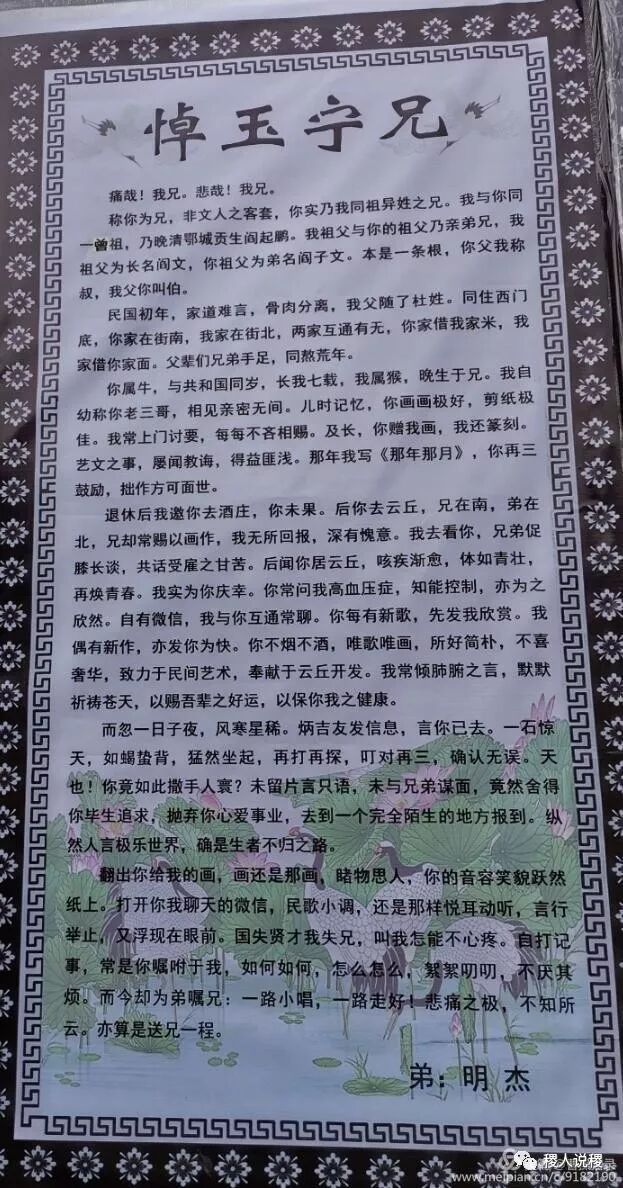 悼玉宁兄
痛哉！我兄。悲哉！我兄。
称你为兄，非文人之客套，你实乃我同祖异姓之兄。我与你同
一曾祖，乃晚清鄂城贡生阎起鹏。我祖父与你的祖父乃亲弟兄，我
祖父为长名阎文，你祖父为弟名阎子文。本是一条根，你父我称
叔，我父你叫伯。
民国初年，家道难言，骨肉分离，我父随了杜姓。同住西门
底，你家在街南，我家在街北，两家互通有无，你家借我家米，我
家借你家面。父辈们兄弟手足，同熬荒年。
你属牛，与共和国同岁，长我七载，我属猴，晚生于兄。我自
幼称你老三哥，相见亲密无间。儿时记忆，你画画极好，剪纸极
佳。我常上门讨要，每每不吝相赐。及长，你赠我画，我还篆刻。
艺文之事，屡闻教诲，得益匪浅。那年我写《那年那月》，你再三
鼓励，拙作方可面世。
退休后我邀你去酒庄，你未果。后你去云丘，兄在南，弟在
北，兄却常赐以画作，我无所回报，深有愧意。我去看你，兄弟促
膝长谈，共话受雇之甘苦。后闻你居云丘，咳疾渐愈，体如青壮，
再焕青春。我实为你庆幸。你常问我高血压症，知能控制，亦为之
欣然。自有微信，我与你互通常聊。你每有新歌，先发我欣赏。我
偶有新作，亦发你为快。你不烟不酒，唯歌唯画，所好简朴，不喜
奢华，致力于民间艺术，奉献于云丘开发。我常倾肺腑之言，默默
祈祷苍天，以赐吾辈之好运，以保你我之健康。
而忽一日子夜，风寒星稀。炳吉友发信息，言你已去。一石惊
天，如蝎蛰背，猛然坐起，再打再探，叮对再三，确认无误。天
也！你竟如此撒手人寰？未留片言只语，未与兄弟谋面，竟然舍得
你毕生追求，抛弃你心爱事业，去到一个完全陌生的地方报到。纵
然人言极乐世界，确是生者不归之路。
翻出你给我的画，画还是那画，睹物思人，你的音容笑貌跃然
纸上。打开你我聊天的微信，民歌小调，还是那样悦耳动听，言行
举止，又浮现在眼前。国失贤才我失兄，叫我怎能不心疼。自打记
事，常是你嘱咐于我，如何如何，怎么怎么，絮絮叨叨，不厌其
烦。而今却为弟嘱兄：一路小唱，一路走好！悲痛之极，不知所
云。亦算是送兄一程。
弟：明杰
稷人说稷
www.meipian.cn/c/9182190